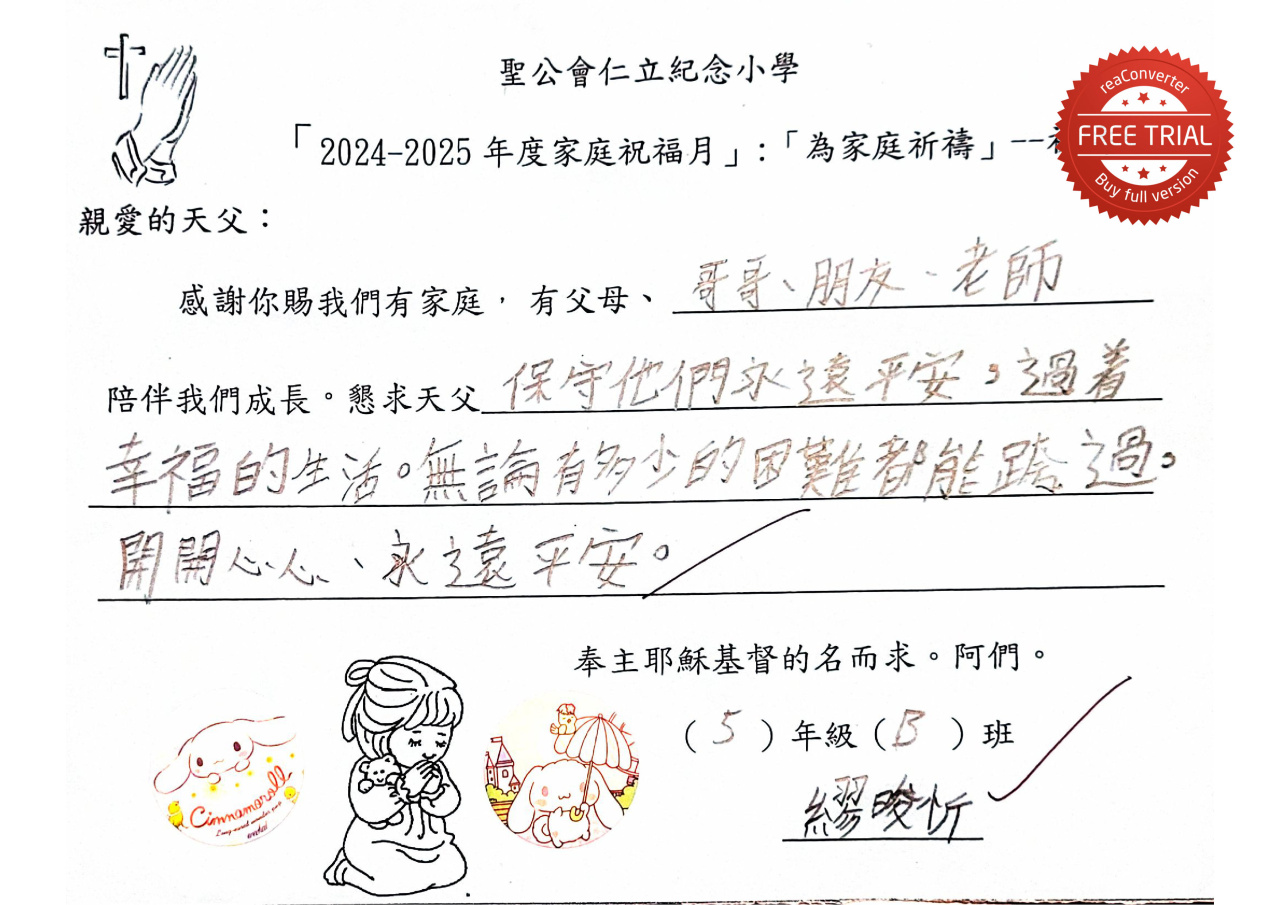 聖公會仁立紀念小學
「2024-2025 年度家庭祝福月」:「為家庭祈禱」--
reaConverter
FREE TRIAL
Buy full version
親愛的天父：
感謝你賜我們有家庭，有父母、哥哥、朋友、老師
陪伴我們成長。懇求天父保守他們永遠平安，過着
幸福的生活。無論有多少的困難都能跨過，
開開心心、永遠平安。
奉主耶穌基督的名而求。阿們。
（5）年級（B）班
繆晙忻
Cinnamoroll